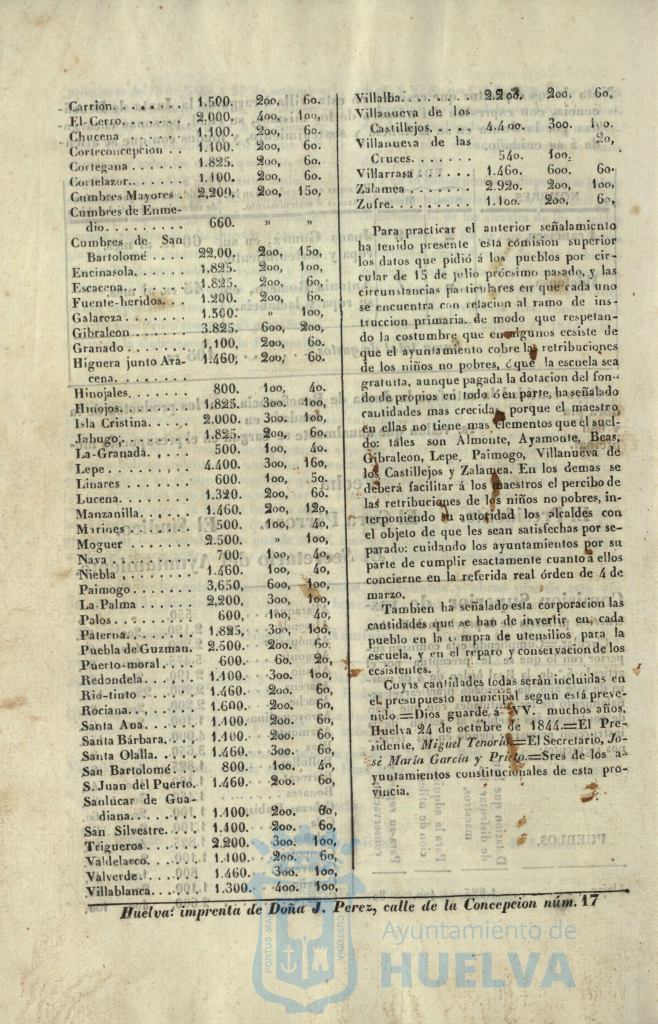 Carrion. . . . . . . . 1.500. 200, 60.
El-Cerro. . . . . . . 2.000. 400, 100,
Chucena . . . . . . 1.100. 200, 60.
Corteconcepcion . . 1.100. 200, 60.
Cortegana . . . . . . 1.825. 200, 60,
Cortelazor. . . . . . 1.100. 200, 60.
Cumbres Mayores . 2,200, 200, 150,
Cumbres de Enme-
dio. . . . . . . . . 660. » »
Cumbres de San
Bartolomé . . . . 22,00. 200, 150,
Encinasola. . . . . . 1.825. 200, 100,
Escacena. . . . . . . 1.825. 200, 60,
Fuente-heridos. . . 1.200. 200, 60,
Galaroza . . . . . . 1.500. » 100,
Gibraleon . . . . . . 3.825. 600, 200,
Granado . . . . . . . 1,100, 200, 60,
Higuera junto Ara- 1.460, 200, 60.
cena. . . . . . . .
Hinojales. . . . . . . 800. 100, 40.
Hinojos. . . . . . . . 1,825. 300. 100,
Isla Cristina. . . . . 2.000. 300. 100,
Jabugo. . . . . . . . 1.825. 200, 60,
La-Granada. . . . . 500. 100, 40.
Lepe . . . . . . . . . 4.400. 300, 160,
Linares . . . . . . . 600. 100, 50.
Lucena. . . . . . . . 1.320. 200, 60.
Manzanilla. . . . . . 1.460. 200, 120,
Marines . . . . . . . 500. 100, 40,
Moguer . . . . . . . 2.500. » 100,
Nava . . . . . . . . . 700. 100, 40,
Niebla . . . . . . . . 1.460. 100, 40,
Paimogo . . . . . . . 3,650, 600, 100,
La-Palma . . . . . . 2,200, 300, 100,
Palos. . . . . . . . . 600, 100, 40,
Paterna. . . . . . . . 1.825, 300, 100,
Puebla de Guzman. 2.500. 200. 60,
Puerto-moral. . . . 600. 60. 20,
Redondela. . . . . . 1.100. 300. 100,
Rio-tinto . . . . . . 1.460. 200. 60,
Rociana. . . . . . . 1.600. 200. 60,
Santa Ana. . . . . . 1.100. 200. 60,
Santa Bárbara. . . . 1.100. 200. 60,
Santa Olalla. . . . . 1.460. 300. 60,
San Bartolomé. . . 800. 100. 40,
S. Juan del Puerto. 1.460. 200. 60,
Sanlúcar de Gua-
diana. . . . . . . . 1.100. 200. 60,
San Silvestre. . . . 1.100. 200. 60,
Trigueros. . . . . . 2.200. 300. 100,
Valdelarco. . . . . . 1.100. 200. 60,
Valverde. . . . . . . 1.460. 300. 100,
Villablanca. . . . . . 1.300. 400. 100,
Villalba. . . . . . . . 2.200. 200. 60,
Villanueva de los
Castillejos. . . . . 4.400. 300. 100.
Villanueva de las 20,
Cruces. . . . . . . 540. 100.
Villarrasa . . . . . . 1.460. 600. 60.
Zalamea . . . . . . . 2.920. 200, 100,
Zufre. . . . . . . . . 1.100. 200. 60,
Para practicar el anterior señalamiento
ha tenido presente esta comision superior
los datos que pidió á los pueblos por cir-
cular de 15 de julio prócsimo pasado, y las
circunstancias particulares en que cada uno
se encuentra con relacion al ramo de ins-
truccion primaria. de modo que respetan-
do la costumbre que en algunos ecsiste de
que el ayuntamiento cobre las retribuciones
de los niños no pobres, ó que la escuela sea
gratuita, aunque pagada la dotacion del fon-
do de propios en todo ó en parte, ha señalado
cantidades mas crecidas, porque el maestro
en ellas no tiene mas elementos que el suel-
do: tales son Almonte, Ayamonte, Beas,
Gibraleon, Lepe, Paimogo, Villanueva de
los Castillejos y Zalamea. En los demas se
deberá facilitar á los maestros el percibo de
las retribuciones de los niños no pobres, in-
terponiendo su autoridad los alcaldes con
el objeto de que les sean satisfechas por se-
parado: cuidando los ayuntamientos por su
parte de cumplir esactamente cuanto á ellos
concierne en la referida real órden de 4 de
marzo.
Tambien ha señalado esta corporacion las
cantidades que se han de invertir en, cada
pueblo en la compra de utensilios, para la
escuela, y en el reparo y conservacion de los
ecsistentes.
Cuyas cantidades todas serán incluidas en
el presupuesto municipal segun está preve-
nido.=Dios guarde á VV. muchos años.
Huelva 24 de octubre de 1844.=El Pre-
sidente, Miguel Tenorio=El Secretario, Jo-
sé María García y Prieto.=Sres de los a-
yuntamientos constitucionales de esta pro-
vincia.
Huelva: imprenta de Doña J. Perez, calle de la Concepcion núm. 17
Ayuntamiento de
HUELVA